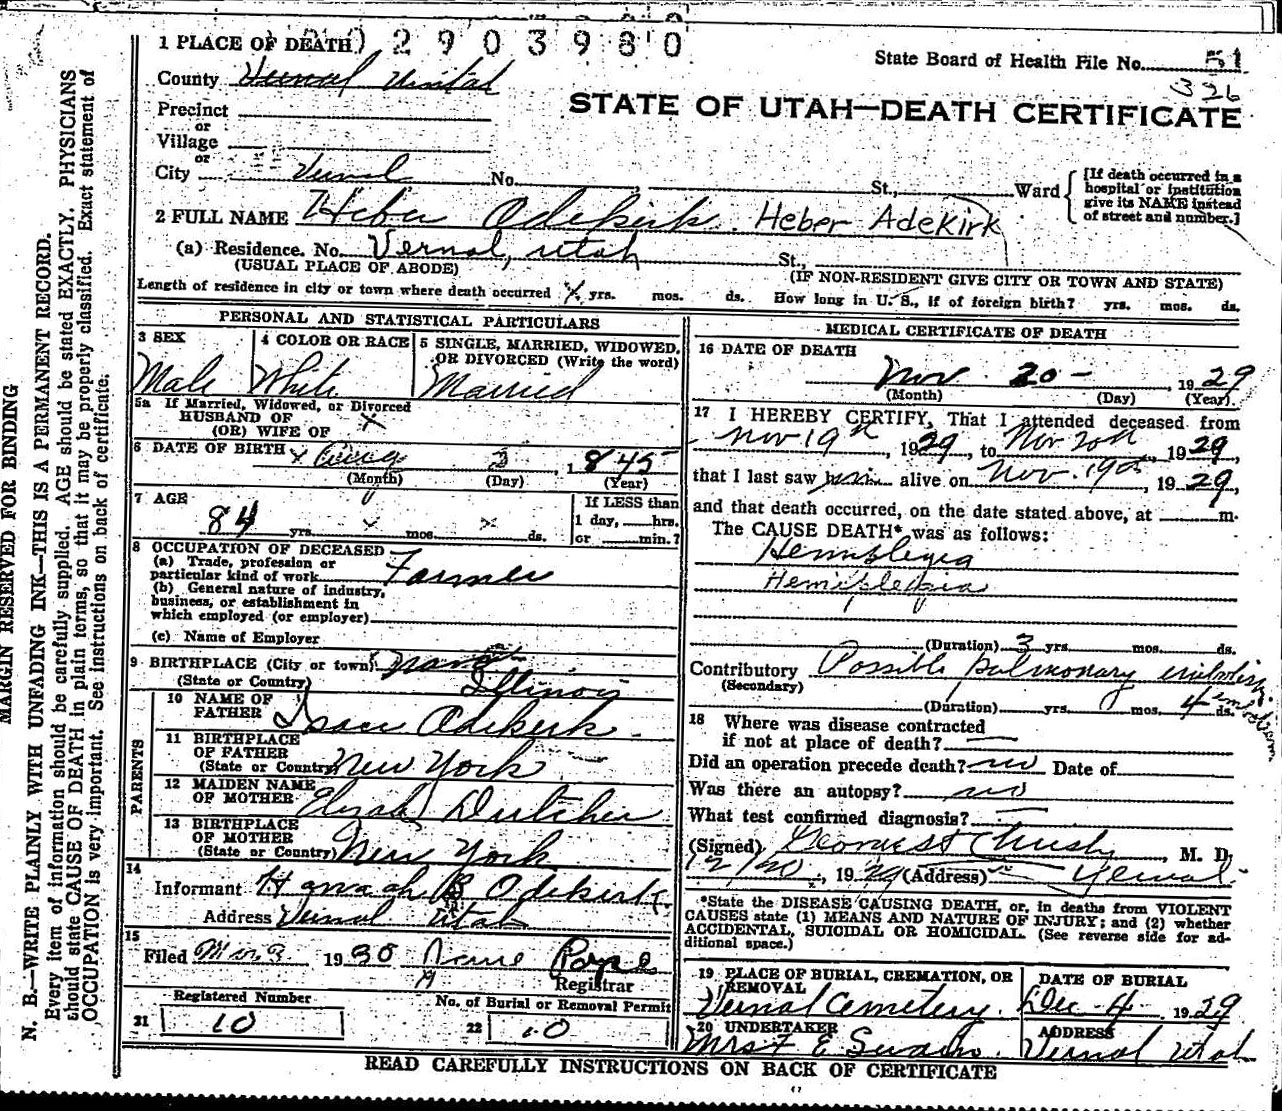 1 PLACE OF DEATH 0 2 9 0 3 9 8 0
State Board of Health File No. 51
326
County Vernal Uintah
STATE OF UTAH—DEATH CERTIFICATE
Precinct
or
Village
or
City Vernal No. St., Ward
[If death occurred in a
hospital or institution
give its NAME instead
of street and number.]
2 FULL NAME Heber Odekirk. Heber Adekirk
(a) Residence. No. Vernal, Utah St.,
(USUAL PLACE OF ABODE) (IF NON-RESIDENT GIVE CITY OR TOWN AND STATE)
Length of residence in city or town where death occurred X yrs. mos. ds. How long in U. S., if of foreign birth? yrs. mos. ds.
PERSONAL AND STATISTICAL PARTICULARS
3 SEX
Male
4 COLOR OR RACE
White
5 SINGLE, MARRIED, WIDOWED,
OR DIVORCED (Write the word)
Married
5a If Married, Widowed, or Divorced
HUSBAND OF
(OR) WIFE OF X
6 DATE OF BIRTH X Aug 3 1845
(Month) (Day) (Year)
7 AGE
84 yrs. X mos. X ds.
If LESS than
1 day, hrs.
or min.?
8 OCCUPATION OF DECEASED
(a) Trade, profession or
particular kind of work Farmer
(b) General nature of industry,
business, or establishment in
which employed (or employer)
(c) Name of Employer
9 BIRTHPLACE (City or town)
(State or Country) Illinois
PARENTS
10 NAME OF
FATHER Isaac Odekirk.
11 BIRTHPLACE
OF FATHER
(State or Country) New York
12 MAIDEN NAME
OF MOTHER Dutcher
13 BIRTHPLACE
OF MOTHER
(State or Country) New York
14
Informant Hannah B Odekirk.
Address Vernal Utah
15
Filed Mar 3 1930
Registrar
Registered Number
21 10
No. of Burial or Removal Permit
22 10
MEDICAL CERTIFICATE OF DEATH
16 DATE OF DEATH
Nov. 20 - , 1929
(Month) (Day) (Year)
17 I HEREBY CERTIFY, That I attended deceased from
Nov 19th, 1929, to Nov 20th, 1929,
that I last saw him alive on Nov. 19th, 1929,
and that death occurred, on the date stated above, at m.
The CAUSE DEATH* was as follows:
Hemiplegia
Hemiplegia
(Duration) 3 yrs. mos. ds.
Contributory Possible pulmonary embolism.
(Secondary) embolism
(Duration) yrs. mos. 4 ds.
18 Where was disease contracted
if not at place of death?
Did an operation precede death? no Date of
Was there an autopsy? no
What test confirmed diagnosis?
(Signed) , M. D.
12/20, 1929 (Address) Vernal
*State the DISEASE CAUSING DEATH, or, in deaths from VIOLENT
CAUSES state (1) MEANS AND NATURE OF INJURY; and (2) whether
ACCIDENTAL, SUICIDAL OR HOMICIDAL. (See reverse side for ad-
ditional space.)
19 PLACE OF BURIAL, CREMATION, OR
REMOVAL
Vernal Cemetery.
DATE OF BURIAL
Dec - 4, 1929
20 UNDERTAKER
Mrs F E Swain.
ADDRESS
Vernal Utah
READ CAREFULLY INSTRUCTIONS ON BACK OF CERTIFICATE
MARGIN RESERVED FOR BINDING
N. B.—WRITE PLAINLY WITH UNFADING INK—THIS IS A PERMANENT RECORD.
Every item of information should be carefully supplied. AGE should be stated EXACTLY. PHYSICIANS
should state CAUSE OF DEATH in plain terms, so that it may be properly classified. Exact statement of
OCCUPATION is very important. See instructions on back of certificate.